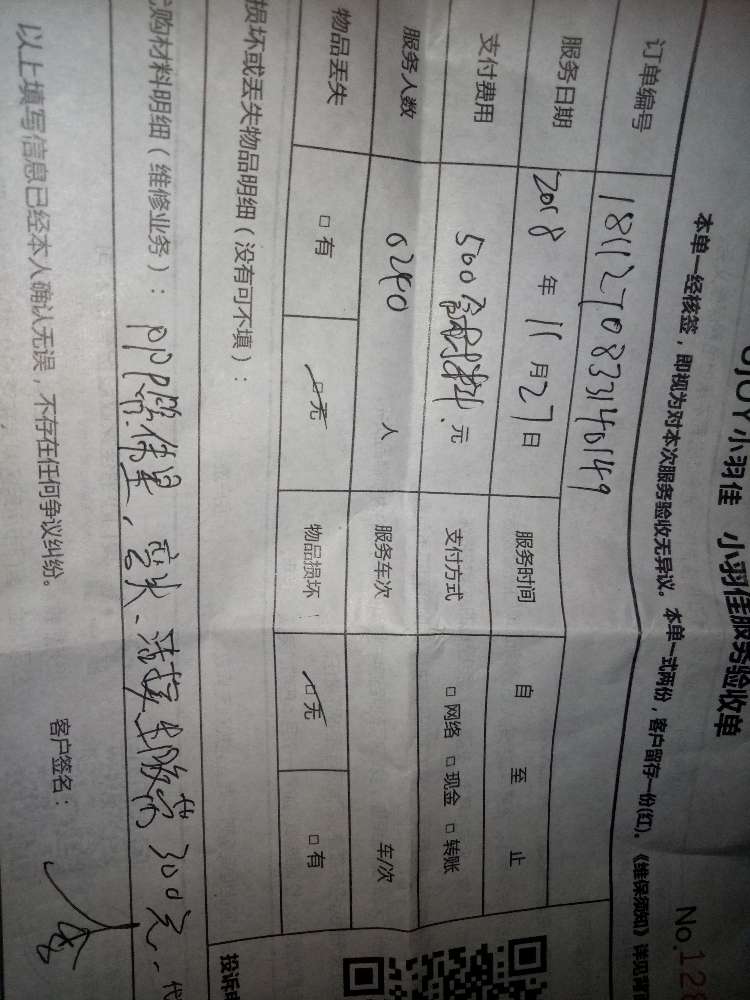 UJOY小羽佳 小羽佳服务验收单
No.12
本单一经核签，即视为对本次服务验收无异议。本单一式两份，客户留存一份(红)。《维保须知》详见
订单编号 1811270833140149
服务日期 2018年11月27日 服务时间 自 至 止
支付费用 500含材料.元 支付方式 □网络 □现金 □转账
服务人数 0240 人 服务车次 车/次
物品丢失 □有 □无 物品损坏： □无 □有
损坏或丢失物品明细（没有可不填）：
购材料明细（维修业务）： 弯头、活接 300元、代
以上填写信息已经本人确认无误，不存在任何争议纠纷。 客户签名：
投诉